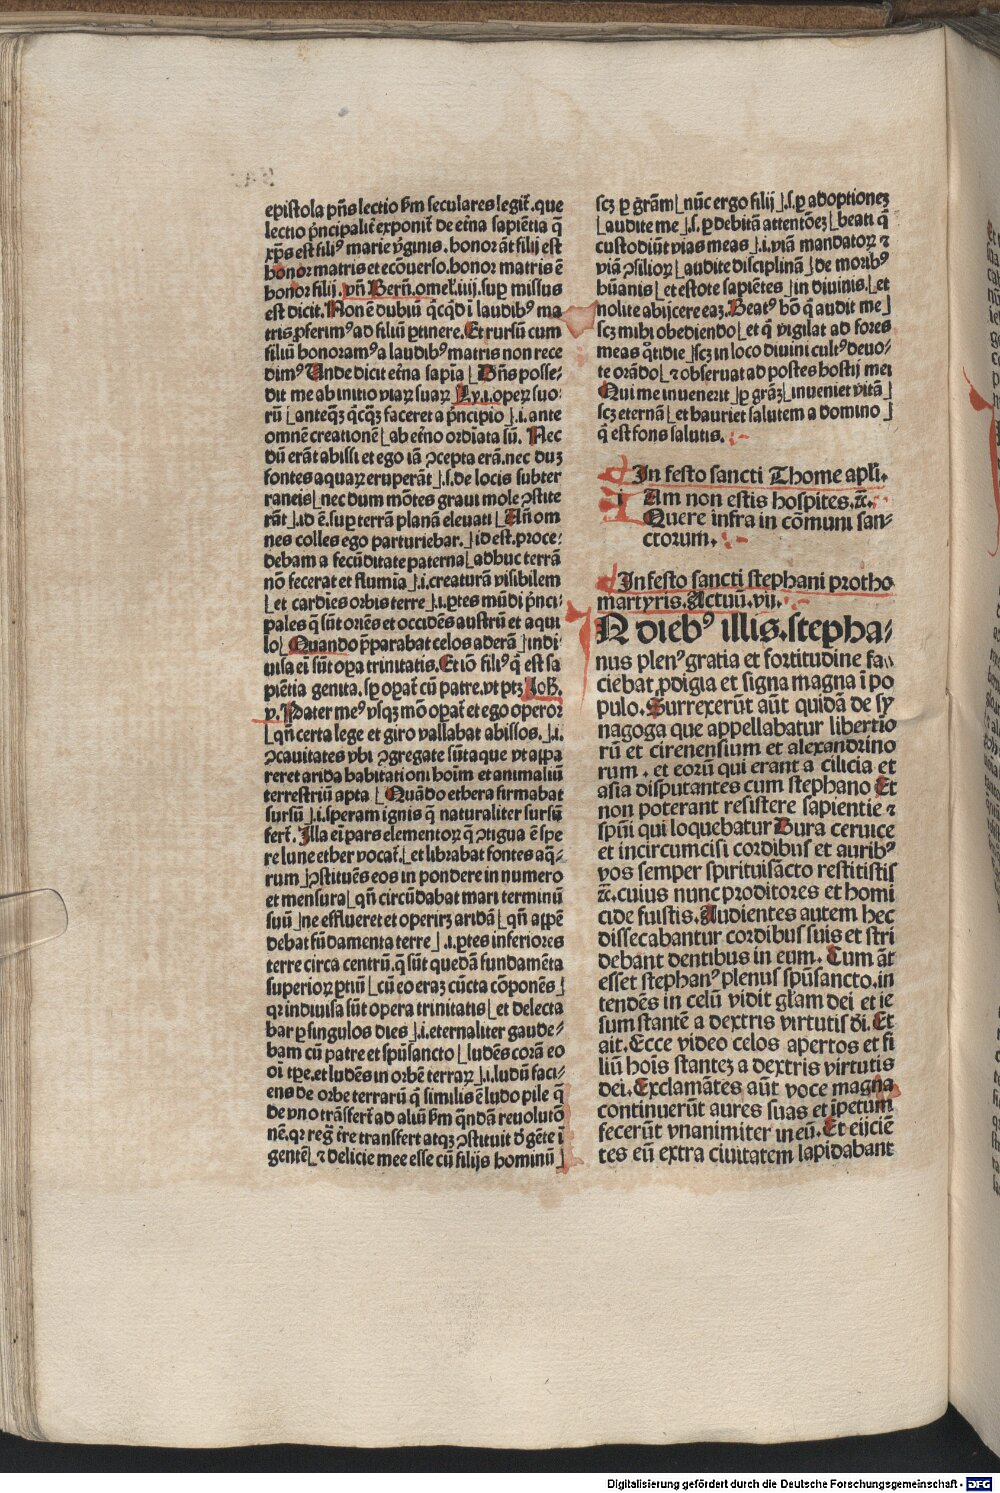 epistola pñs lectio ẜm seculares legit̃. que
lectio p̃ncipalit̃ exponit̃ de et̃na sapiẽtia q̃
xp̃s est filiꝰ marie ṽginis. honor ãt filij est
honor matris et ecõuerso. honor matris ẽ
honor filij. vñ Berñ. omeĺ. iiij. suꝑ missus
est dicit. Non ẽ dubiũ q̃cq̃d ĩ laudibꝰ ma
tris ꝓferimꝰ ad filiũ ꝑtinere. Et rursũ cum
filiũ honoramꝰ a laudibꝰ matris non rece
dimꝰ Unde dicit et̃na sapĩa ⌊ Dñs posse⸗
dit me ab initio viaꝝ suaꝝ ⌊ ly .i. opeꝝ suo⸗
rũ ⌊ anteq̃ꝫ q̃cq̃ꝫ faceret a p̃ncipio ⌋ .i. ante
omnẽ creationẽ ⌊ ab et̃no ordĩata sũ. Nec
dũ erãt abissi et ego iã ꝯcepta erã. nec duꝫ
fontes aquaꝝ eruperãt ⌋ .s. de locis subter
raneis ⌊ nec dum mõtes graui mole ꝯstite
rãt ⌋ .id ẽ. suꝑ terrã planã eleuati ⌊ Añ om
nes colles ego parturiebar. ⌋ id est. proce⸗
debam a fecũditate paterna ⌊ adhuc terrã
nõ fecerat et flumĩa ⌋ .i. creaturã visibilem
⌊ et cardĩes orbis terre ⌋ .i. ꝑtes mũdi p̃nci⸗
pales q̃ sũt oriẽs et occidẽs austrũ et aqui
lo ⌊ Quando p̃parabat celos aderã ⌋ indi⸗
uisa eĩ sũt oꝑa trinitatis. Et iõ filiꝰ q̃ est sa
piẽtia genita. sꝑ oꝑat̃ cũ patre. vt ptꝫ Joh̃.
v. Pater meꝰ vsqꝫ mõ oꝑat̃ et ego operor
⌊ qñ certa lege et giro vallabat abissos. ⌋ .i.
ꝯcauitates vbi ꝯgregate sũt aque vt aꝑpa
reret arida habitationi hoĩm et animaliũ
terrestriũ apta ⌊ Quãdo ethera firmabat
sursũ ⌋ .i. speram ignis q̃ naturaliter sursũ
fert̃. Illa eĩ pars elementoꝝ q̃ ꝯtigua ẽ spe
re lune ether vocat̃. ⌊ et librabat fontes aq̃⸗
rum ⌋ ꝯstituẽs eos in pondere in numero
et mensura ⌊ qñ circũdabat mari terminũ
suũ ⌋ ne efflueret et operirꝫ aridã ⌊ qñ aꝑpẽ
debat fũdamenta terre ⌋ .i. ꝑtes inferiores
terre circa centrũ. q̃ sũt quedã fundamẽta
superioꝝ ꝑtiũ ⌊ cũ eo eraꝫ cũcta cõponẽs ⌋
qꝛ indiuisa sũt opera trinitatis ⌊ et delecta
bar ꝑ singulos dies ⌋ .i. eternaliter gaude⸗
bam cũ patre et spũsancto ⌊ ludẽs corã eo
oĩ tꝑe. et ludẽs in orbẽ terraꝝ ⌋ .i. ludũ faci⸗
ens de orbe terrarũ q̃ similis ẽ ludo pile q̃
de vno trãsfert̃ ad aliũ ẜm q̃ndã reuolutõ
nẽ. qꝛ reg̃ t̃re transfert atqꝫ ꝯstituit d̃ gẽte ĩ
gentẽ ⌊ ⁊ delicie mee esse cũ filijs hominũ ⌋
scꝫ ꝑ gr̃am ⌊ nũc ergo filij ⌋ .s. ꝑ adoptioneꝫ
⌊ audite me ⌋ .s. ꝑ debitã attentõeꝫ ⌊ beati q̃
custodiũt vias meas ⌋ .i. viã mandatoꝝ ⁊
viã ꝯsilioꝝ ⌊ audite disciplinã ⌋ de moribꝰ
hũanis ⌊ et estote sapiẽtes ⌋ in diuinis. ⌊ et
nolite abijcere eaꝫ. Beatꝰ hõ q̃ audit me ⌋
scꝫ mihi obediendo ⌊ et q̃ vigilat ad fores
meas q̃tidie ⌋ scꝫ in loco diuini cultꝰ deuo⸗
te orãdo ⌊ ⁊ obseruat ad postes hostij mei
Qui me inuenerit ⌋ ꝑ grãꝫ ⌊ inueniet vitã ⌋
scꝫ eternã ⌊ et hauriet salutem a domino ⌋
q̃ est fons salutis.
In festo sancti Thome apłi.
i Am non estis hospites. ⁊c̃.
Quere infra in cõmuni san⸗
ctorum.
In festo sancti stephani protho
martyris. Actuũ. vij.
N diebꝰ illis. stepha⸗
nus plenꝰ gratia et fortitudine fa
ciebat ꝓdigia et signa magna ĩ po
pulo. Surrexerũt aũt quidã de sy
nagoga que appellabatur libertino
rũ et cirenensium et alexandrino
rum. et eorũ qui erant a cilicia et
asia disputantes cum stephano Et
non poterant resistere sapientie ⁊
spũi qui loquebatur Dura ceruice
et incircumcisi cordibus et auribꝰ
vos semper spirituisãcto restitistis
⁊c̃. cuius nunc proditores et homi
cide fuistis. Audientes autem hec
dissecabantur cordibus suis et stri
debant dentibus in eum. Cum ãt
esset stephanꝰ plenus spũsancto. in
tendẽs in celũ vidit gĺam dei et ie
sum stantẽ a dextris virtutis d̃i. Et
ait. Ecce video celos apertos et fi
liũ hoĩs stanteꝫ a dextris virtutis
dei. Exclamãtes aũt voce magna
continuerũt aures suas et ĩpetum
fecerũt vnanimiter in eũ. Et eijciẽ
tes eũ extra ciuitatem lapidabant
Digitalisierung gefördert durch die Deutsche Forschungsgemeinschaft - DFG